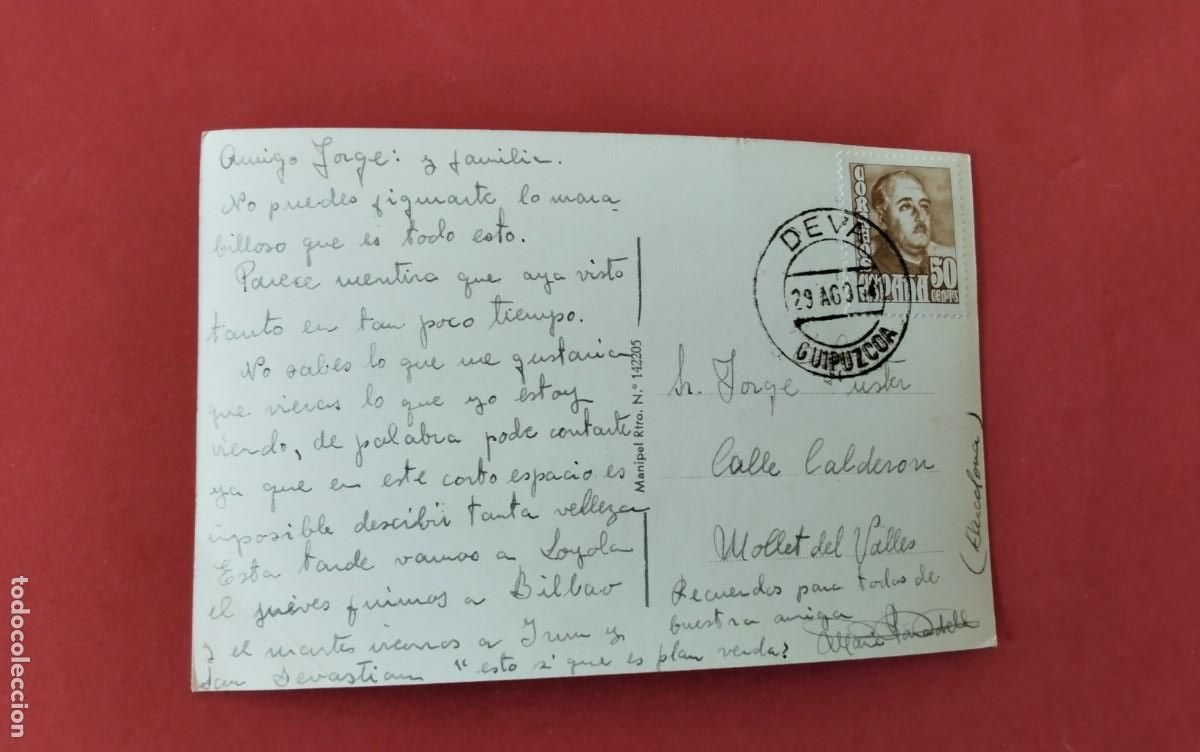 Amigo Jorge: y familia.
No puedes figurarte lo mara-
billoso que es todo esto.
Parece mentira que aya visto
tanto en tan poco tiempo.
No sabes lo que me gustaria
que vieras lo que yo estoy
viendo, de palabra pode contarte
ya que en este corto espacio es
imposible describir tanta velleza
Esta tarde vamos a Loyola
el jueves fuimos a Bilbao
y el martes iremos a Irun y
San Sevastian "esto si que es plan verda?
Manipel Rtro. N.º 142205
CORREOS
ESPAÑA
50
CENTS
DEVA
29 AGO 54
GUIPUZCOA
Sr. Jorge
Calle Calderon
Mollet del Valles
(Barcelona)
Recuerdos para todos de
buestra amiga
Maria
todocoleccion